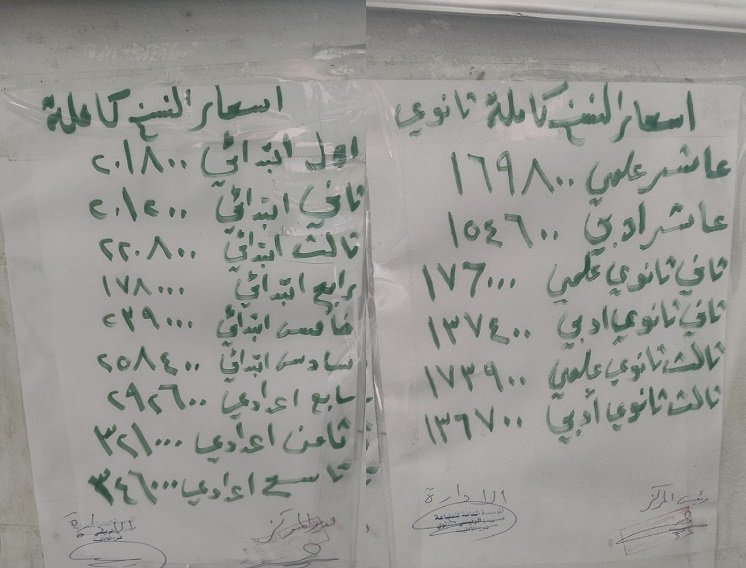 اسعار النسخ كاملة
اول ابتدائي ٢٠١٨٠٠
ثاني ابتدائي ٢٠١٢٠٠
ثالث ابتدائي ٢٢٠٨٠٠
رابع ابتدائي ١٧٨٠٠٠
خامس ابتدائي ٢٣٩٠٠٠
سادس ابتدائي ٢٥٨٤٠٠
سابع اعدادي ٢٩٢٦٠٠
ثامن اعدادي ٣٢١٠٠٠
تاسع اعدادي ٣٤٦٠٠٠
مدير المركز الادارة
اسعار النسخ كاملة ثانوي
عاشر علمي ١٦٩٨٠٠
عاشر ادبي ١٥٤٦٠٠
ثاني ثانوي علمي ١٧٦٠٠٠
ثاني ثانوي ادبي ١٣٧٤٠٠
ثالث ثانوي علمي ١٧٣٩٠٠
ثالث ثانوي أدبي ١٣٦٧٠٠
رئيس المركز الادارة
المؤسسة العامة للطباعة